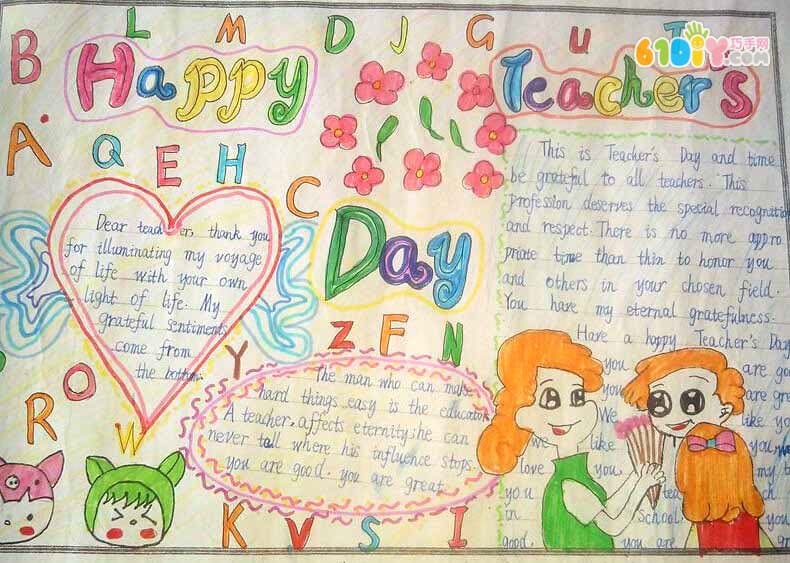 L M D J G U T
B
Happy
Teacher's
610iY巧手网
.com
A Q E H
C
Day
This is Teacher's Day and time
be grateful to all teachers. This
Profession deserves the special recognition
and respect. There is no more appro
priate time than thin to honor you
and others in your chosen field.
You have my eternal gratefulness.
Have a happy Teacher's Day
you are good
you are gre
We like you
we like you
love you my t
you tea ch
in School. you
good. you are gr
Dear teachers, thank you
for illuminating my voyage
of life with your own
light of life. My
grateful sentiments
come from
the bottom.
Z F N
Y
O
R W
The man who can make
hard things easy is the educator
A teacher, affects eternity: he can
never tall where his influence stops.
you are good. you are great
K V S I